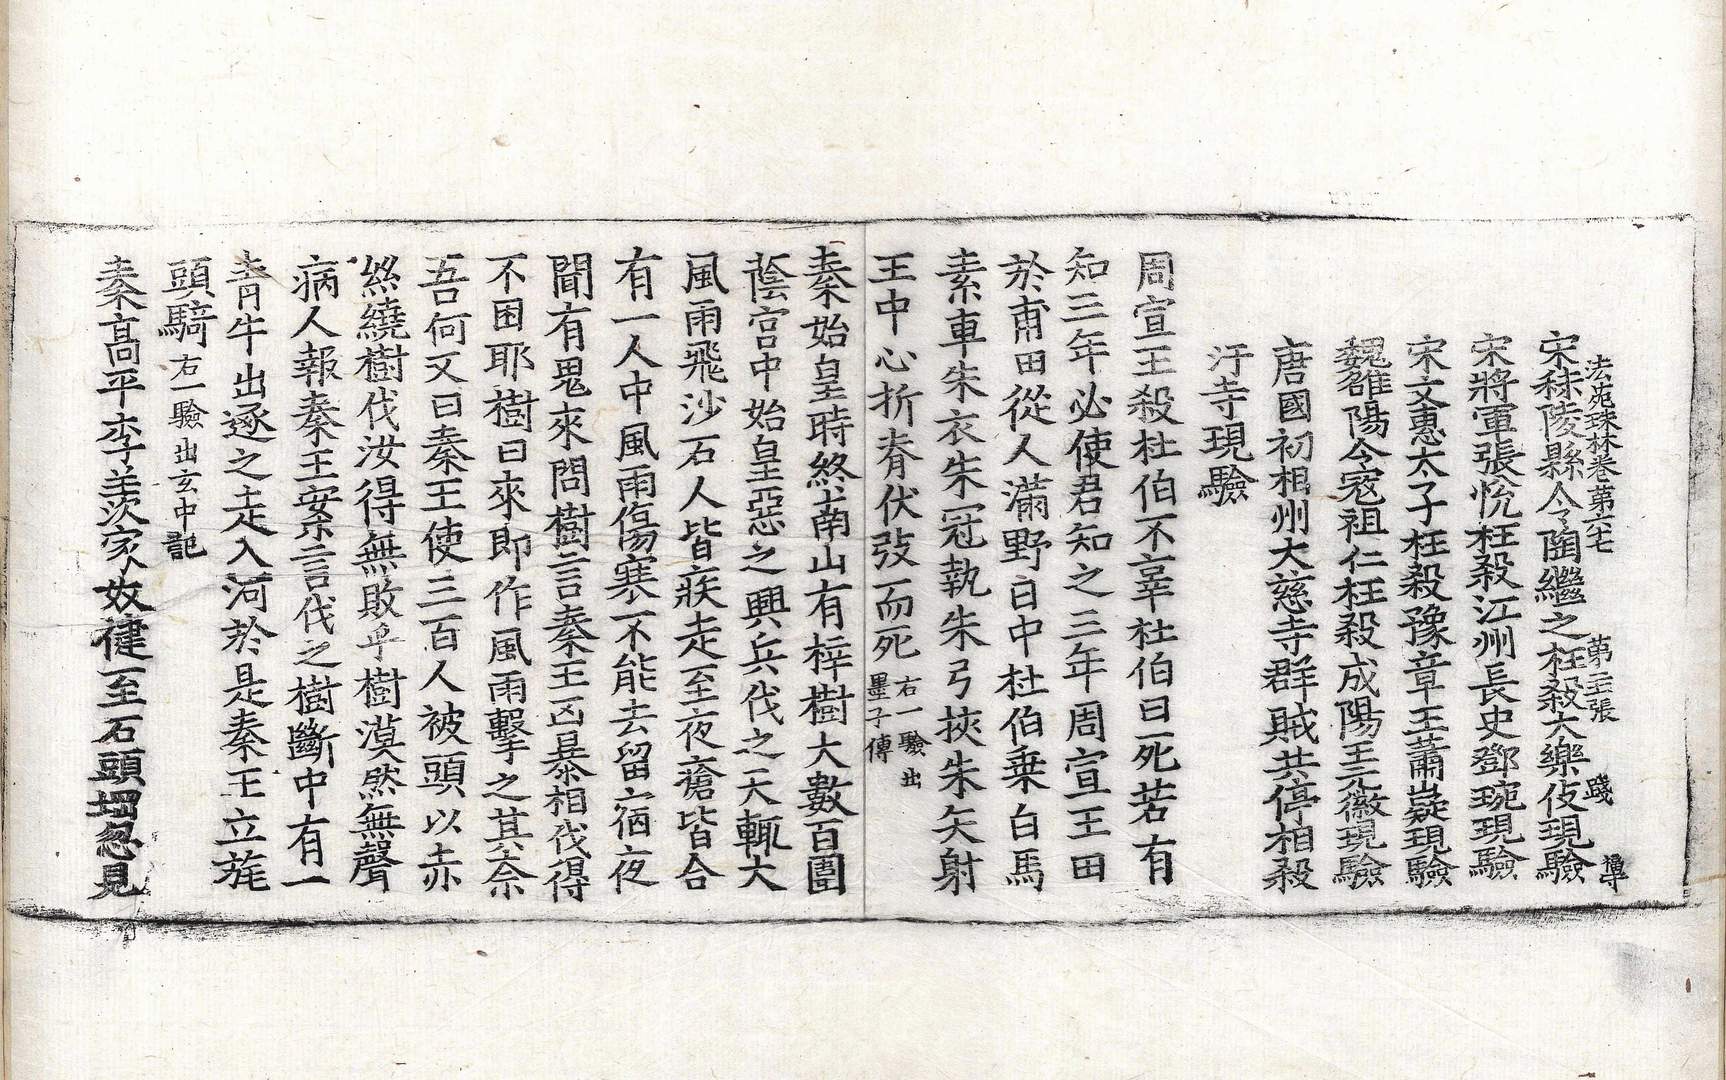 法苑珠林卷第六七 第三張 踐
宋秣陵縣令陶繼之枉殺大樂伎現驗
宋將軍張悅枉殺江州長史鄧琬現驗
宋文惠太子枉殺豫章王蕭嶷現驗
魏雒陽令寇祖仁枉殺成陽王元徽現驗
唐國初相州大慈寺群賊共停相殺
汙寺現驗
周宣王殺杜伯不辜杜伯曰死若有
知三年必使君知之三年周宣王田
於甫田從人滿野日中杜伯乗白馬
素車朱衣朱冠執朱弓挾朱矢射
王中心折脊伏弢而死右一驗出
墨子傳
秦始皇時終南山有梓樹大數百圍
蔭宮中始皇惡之興兵伐之天輒大
風雨飛沙石人皆疾走至夜瘡皆合
有一人中風雨傷寒不能去留宿夜
聞有鬼來問樹言秦王凶暴相伐得
不困耶樹曰來即作風雨擊之其奈
吾何又曰秦王使三百人被頭以赤
絲繞樹伐汝得無敗乎樹漠然無聲
病人報秦王案言伐之樹斷中有一
青牛出逐之走入河於是秦王立旄
頭騎右一驗出玄中記
秦高平李羡家奴健至石頭堈忽見